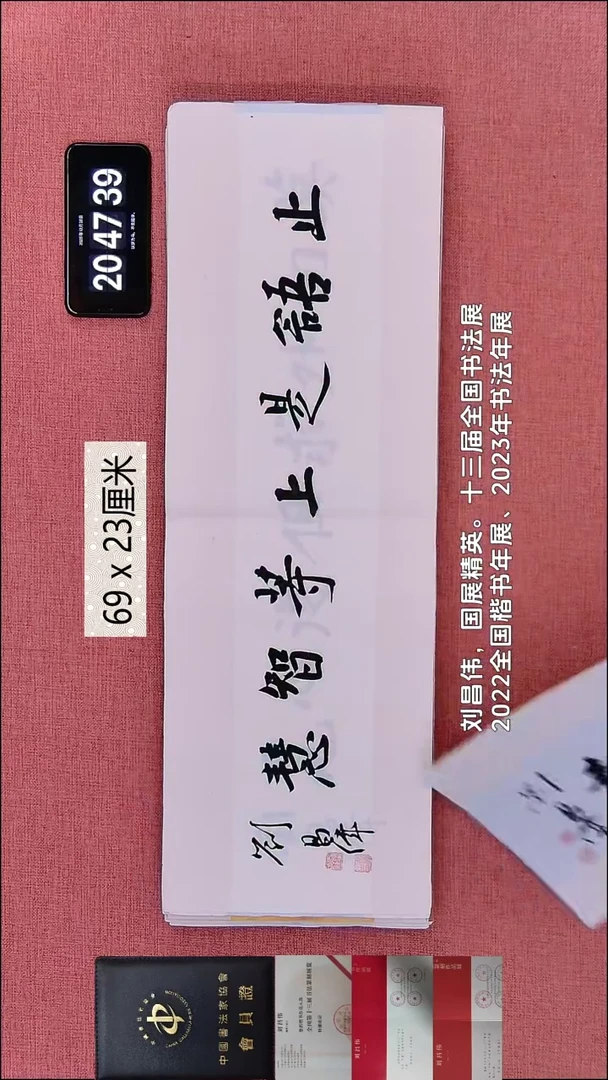 20 47 39
69 x 23厘米
止語是上等智慧
劉昌偉
刘昌伟，国展精英。十三届全国书法展
2022全国楷书年展、2023年书法年展
中國書法家協會
會員證